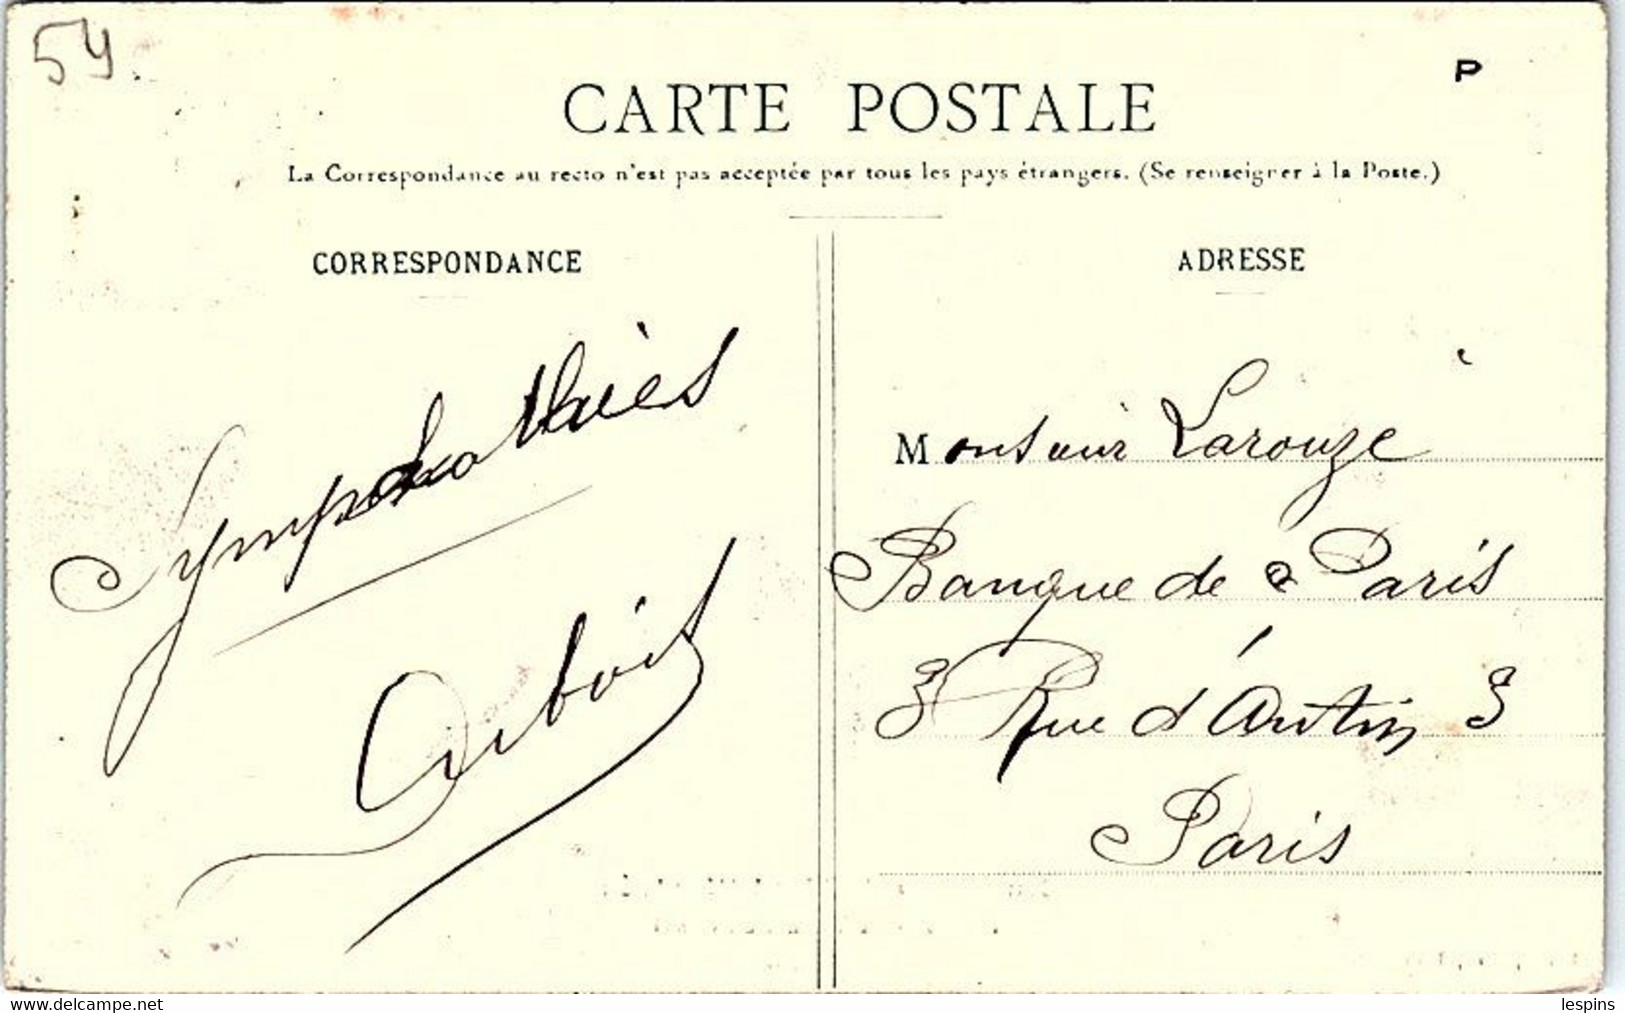 54
P
CARTE POSTALE
La Correspondance au recto n'est pas acceptée par tous les pays étrangers. (Se renseigner à la Poste.)
CORRESPONDANCE
ADRESSE
Sympathies
Dubois
Monsieur Larouzé
Banque de Paris
3 Rue d'Antin 3
Paris
www.delcampe.net
lespins